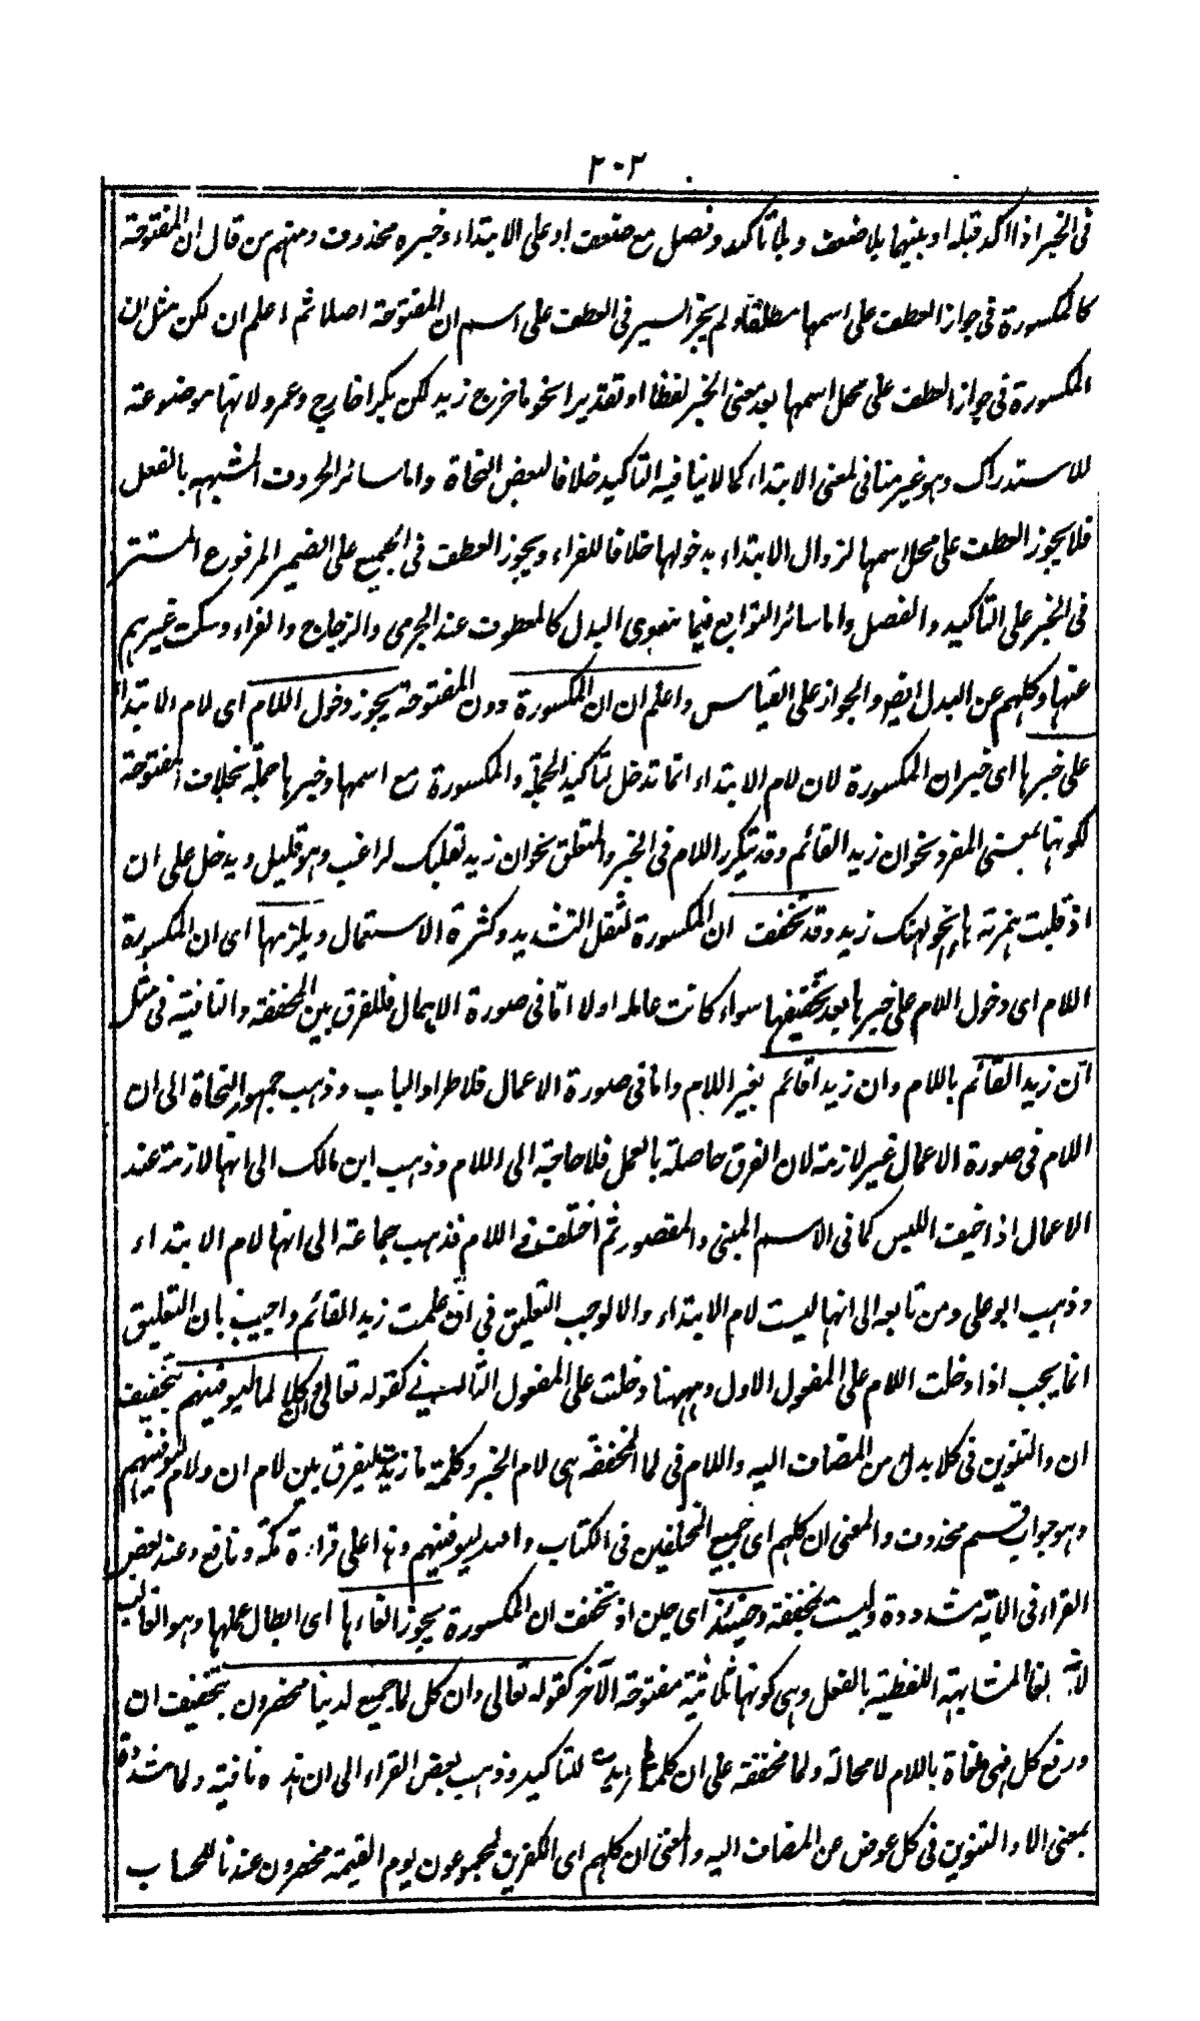 ٢٠٢
فى الخبر اذا اكد قبله او بينهما بلا ضعف و بلا تاكيد و فصل مع ضعف او على الابتداء و خبره محذوف و منهم من قال ان المفتوحة
كالمكسورة فى جواز العطف على اسمها مطلقا و لم يجز السير فى العطف على اسم ان المفتوحة اصلا ثم اعلم ان لكن مثل ان
المكسورة فى جواز العطف على محل اسمها بعد معنى الخبر لفظا او تقديرا نحو ما خرج زيد لكن بكرا خارج و عمرو لانها موضوعة
للاستدراك و هو غير مناف لمعنى الابتداء كما لا ينافيه التاكيد خلافا لبعض النحاة و اما سائر الحروف المشبهه بالفعل
فلا يجوز العطف على محل اسمها لزوال الابتداء بدخولها خلافا للفراء و يجوز العطف فى الجميع على الضمير المرفوع المستتر
فى الخبر على التاكيد و الفصل و اما سائر التوابع فيما سوى البدل كالمعطوف عند الجرمى و الزجاج و الفراء و سكت غيرهم
عنها و كلهم عن البدل ايضو الجواز على القياس و اعلم ان ان المكسورة دون المفتوحة يجوز دخول اللام اى لام الابتداء
على خبرها اى خبر ان المكسورة لان لام الابتداء انما تدخل لتاكيد الجملة و المكسورة مع اسمها و خبرها جملة بخلاف المفتوحة
لكونها بمعنى المفرد نحو ان زيد القائم و قد تكرر اللام فى الخبر و المتعلق نحو ان زيد لعليك لراغب و هو قليل و يدخل على ان
اذ قلبت همزته هاء نحو لهنك زيد و قد تخفف ان المكسورة لثقل التشديد و كثرة الاستعمال و يلزمها اى ان المكسورة
اللام اى دخول اللام على خبرها بعد تخفيفها سواء كانت عاملة اولا اما فى صورة الاهمال فللفرق بين المخففة و النافية فى مثل
ان زيد القائم باللام و ان زيد اقائم بغير اللام و اما فى صورة الاعمال فلاطراد الباب و ذهب جمهور النحاة الى ان
اللام فى صورة الاعمال غير لازمة لان الفرق حاصلة بالعمل فلا حاجة الى اللام و ذهب ابن مالك الى انها لازمة عند
الاعمال اذا خيف اللبس كما فى الاسم المبنى و المقصور ثم اختلف فى اللام فذهب جماعة الى انها لام الابتداء
و ذهب ابو على و من تابعه الى انها ليست لام الابتداء و الا لوجب التعليق فى ان علمت زيد القائم و اجيب بان التعليق
انما يجب اذا دخلت اللام على المفعول الاول و ههنا دخلت على المفعول الثانى كقوله تعالى و ان كلا لما ليوفينهم بتخفيف
ان و التنوين فى كلا بدل من المضاف اليه و اللام فى لما المخففة هى لام الخبر و كلمة ما زيدت ليفرق بين لام ان و لام ليوفينهم
و هو جواب قسم محذوف و المعنى ان كلهم اى جميع المختلفين فى الكتاب و الله ليوفينهم و هذا على قراءة مكة و نافع و عند بعض
القراء فى الاية مشددة و ليست بمخففة و حينئذ اى حين اذ تخفف ان المكسورة يجوز الغاءها اى ابطال عملها و هو الغالب
لانه لغا المشابهة اللفظية بالفعل و هى كونها ثلاثية مفتوحة الآخر كقوله تعالى و ان كل لما جميع لدينا محضرون بتخفيف ان
و رفع كل فهى ملغاة باللام لا محالة و لما مخففة على ان كلمة ما زيدت للتاكيد و ذهب بعض القراء الى ان هذه نافية و لما مشددة
بمعنى الا و التنوين فى كل عوض عن المضاف اليه و المعنى ان كلهم اى الكفرين لمجموعون يوم القيمة محضرون عندنا للحساب